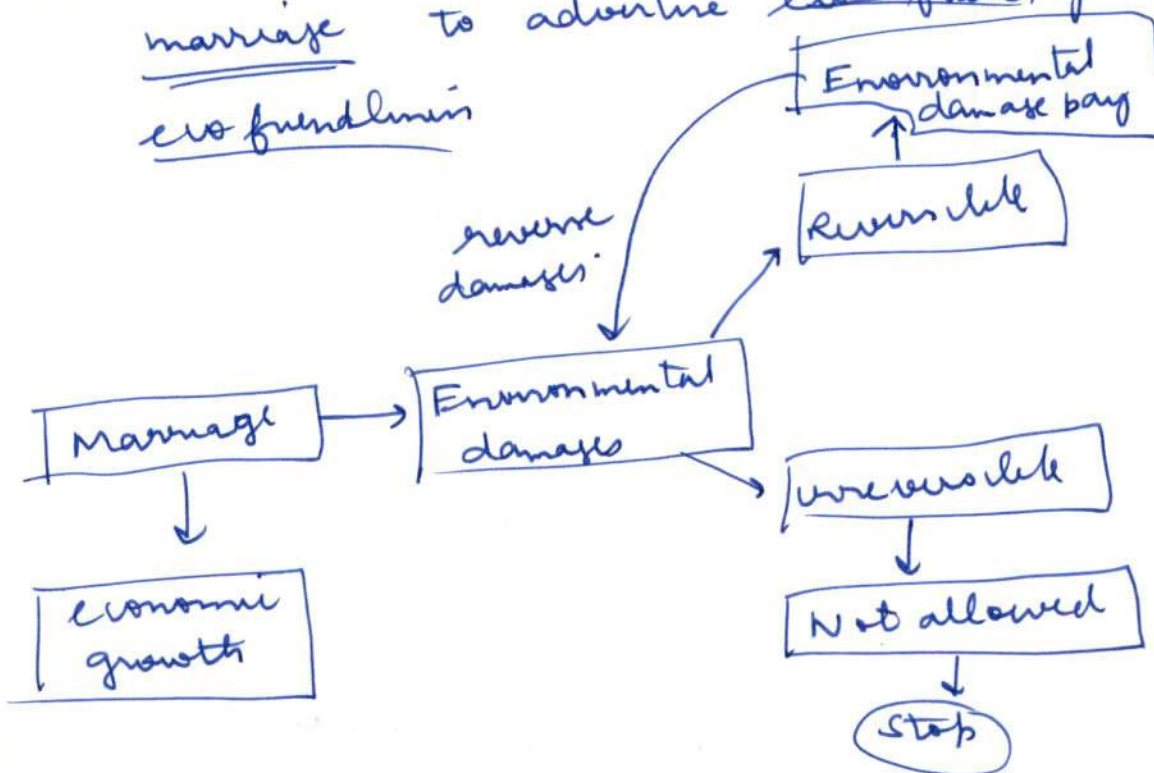 marriage to advertise
eco friendliness
Environmental
damage pay
Reversible
reverse
damages
Marriage
Environmental
damages
irreversible
economic
growth
Not allowed
Stop